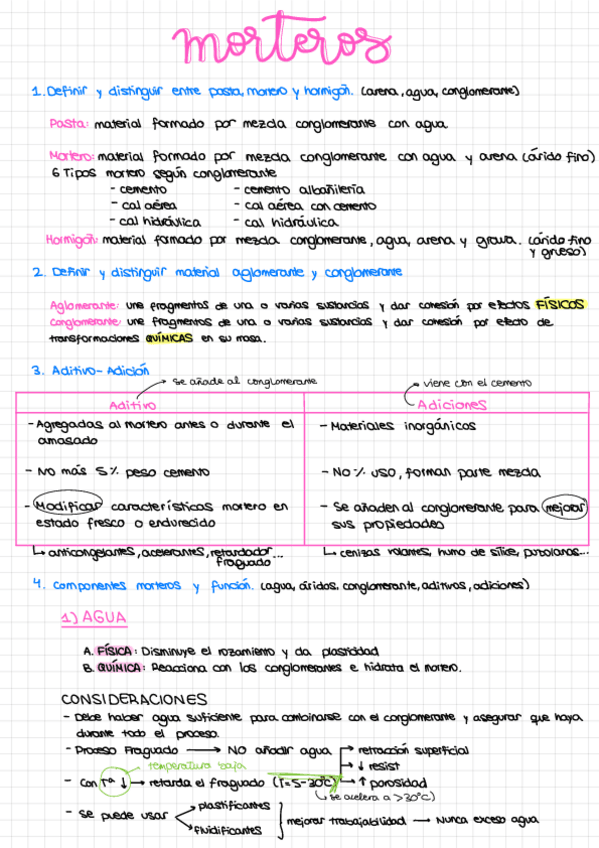 morteros
1. Definir y distinguir entre pasta, mortero y hormigón. (arena, agua, conglomerante)
Pasta: material formado por mezcla conglomerante con agua.
Mortero: material formado por mezcla conglomerante con agua y arena (árido fino)
6 Tipos mortero según conglomerante
- cemento - cemento albañilería
- cal aérea - cal aérea con cemento
- cal hidráulica - cal hidráulica
Hormigón: material formado por mezcla conglomerante, agua, arena y grava. (árido fino
y grueso)
2. Definir y distinguir material aglomerante y conglomerante
Aglomerante: une fragmentos de una o varias sustancias y dar cohesión por efectos FÍSICOS
Conglomerante: une fragmentos de una o varias sustancias y dar cohesión por efecto de
transformaciones QUÍMICAS en su masa.
3. Aditivo - Adición
se añade al conglomerante
viene con el cemento
Aditivo Adiciones
- Agregadas al mortero antes o durante el
amasado
- Materiales inorgánicos
- No más 5% peso cemento
- No % uso, forman parte mezcla
- Modificar características mortero en
estado fresco o endurecido
- Se añaden al conglomerante para mejorar
sus propiedades
↳ anticongelantes, acelerantes, retardador...
fraguado
↳ cenizas volantes, humo de sílice, puzolanas...
4. Componentes morteros y función. (agua, áridos, conglomerante, aditivos, adiciones)
1) AGUA
A. FÍSICA: Disminuye el rozamiento y da plasticidad
B. QUÍMICA: Reacciona con los conglomerantes e hidrata el mortero.
CONSIDERACIONES
- Debe haber agua suficiente para combinarse con el conglomerante y asegurar que haya
durante todo el proceso.
- Proceso Fraguado → NO añadir agua → retracción superficial
temperatura baja
→ ↓ resist
- Con Tª ↓ → retarda el fraguado (T=5-30ºC) → ↑ porosidad
↳ se acelera a >30ºC)
- Se puede usar
plastificantes
fluidificantes
mejorar trabajabilidad → Nunca exceso agua